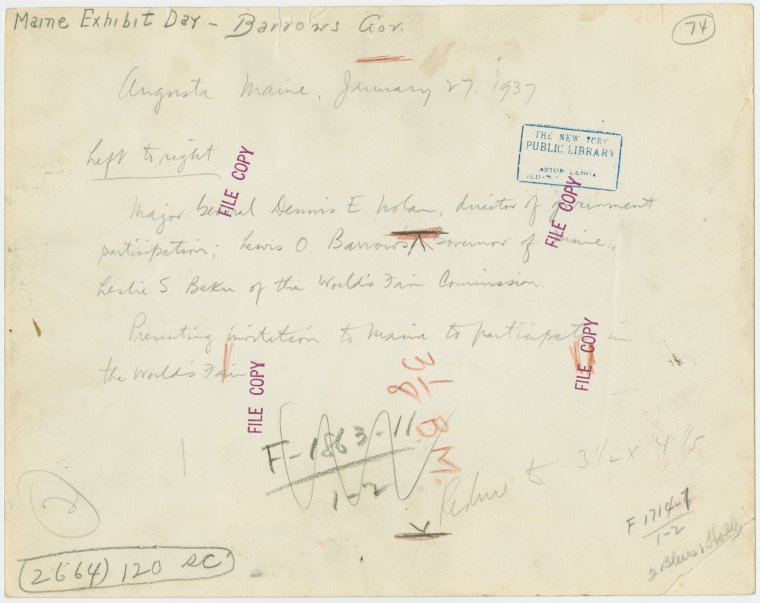 Maine Exhibit Day - Barrows Gov.
74
Augusta Maine, January 27, 1937
Left to right
THE NEW YORK
PUBLIC LIBRARY
ASTOR LENOX
FILE COPY
Major General Dennis E. Nolan, director of government
participation; Lewis O. Barrows, Governor of Maine,
FILE COPY
Leslie S. Baker of the World's Fair Commission.
Presenting invitation to Maine to participate in
the World's Fair
FILE COPY
FILE COPY
3 1/8 B.M.
F-1863-11
1-2
Reduce to 3 1/2 x 4 1/5
2
F 1714-1
1-2
2664) 120 SC